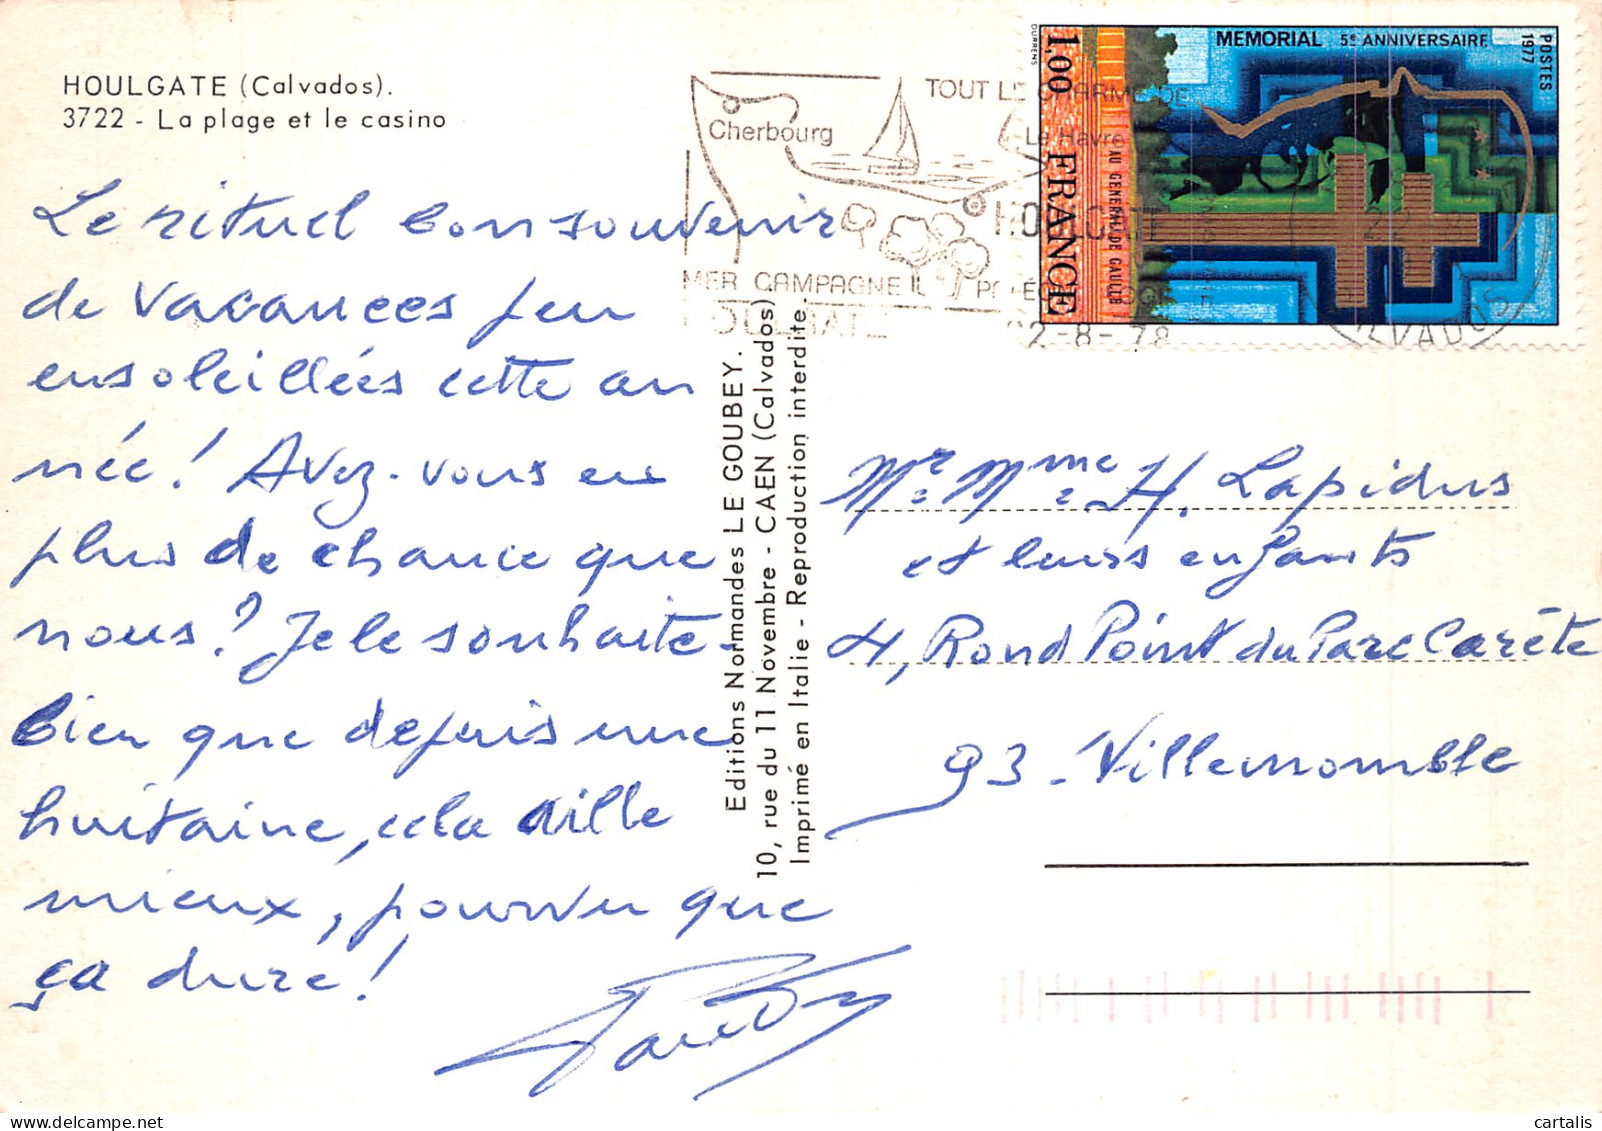 HOULGATE (Calvados).
3722 - La plage et le casino
Le rituel bon souvenir
de vacances peu
ensoleillées cette an
née! Avez-vous eu
plus de chance que
nous? Je le souhaite-
bien que depuis une
huitaine, cela aille
mieux, pourvu que
ça dure!
Editions Normandes LE GOUBEY.
10, rue du 11 Novembre - CAEN (Calvados)
Imprimé en Italie - Reproduction interdite.
TOUT LE CHARME DE
Cherbourg
Le Havre
HOULGATE
MER CAMPAGNE
HOULGATE
2-8-78
CALVADOS
DURRENS
1,00 FRANCE
AU GENERAL DE GAULLE
MEMORIAL 5e ANNIVERSAIRE
POSTES
1977
Mr. Mme. H. Lapidus
et leurs enfants
4, Rond Point du Parc Carête
93 - Villemomble
cartalis - delcampe.net